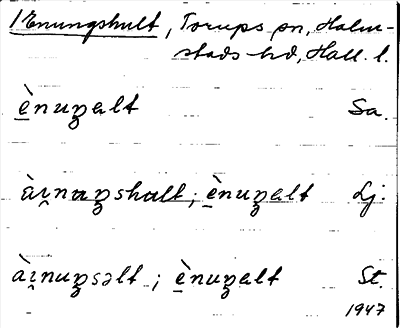 1 Enungshult, Torups sn, Halm-
stads hd, Hall. l.
ènuŋalt Sa.
àı̯naŋshalt; ènuŋalt Lj.
àı̯nuŋsəlt; ènuŋalt St.
1947